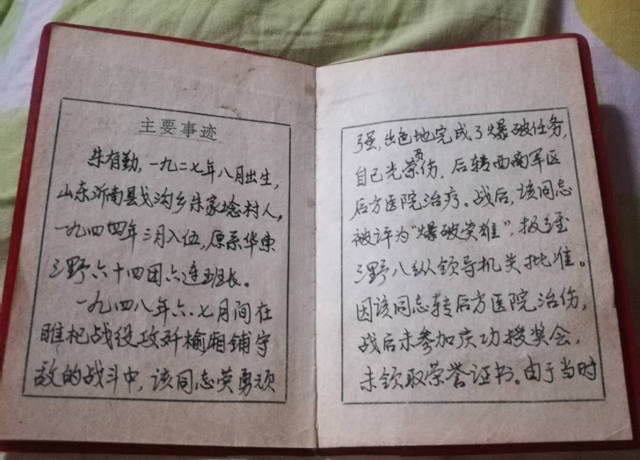 主要事迹
朱有勤,一九二七年八月出生,
山东沂南县戈沟乡朱家埝村人,
一九四四年三月入伍,原系华东
三野六十四团六连班长。
一九四八年六.七月间在
睢杞战役攻歼榆厢铺守
敌的战斗中,该同志英勇顽
强,出色地完成了爆破任务,
自己光荣负伤,后转西南军区
后方医院治疗。战后,该同志
被评为“爆破英雄”,报经
三野八纵领导机关批准。
因该同志转后方医院治伤,
战后未参加庆功授奖会,
未领取荣誉证书。由于当时